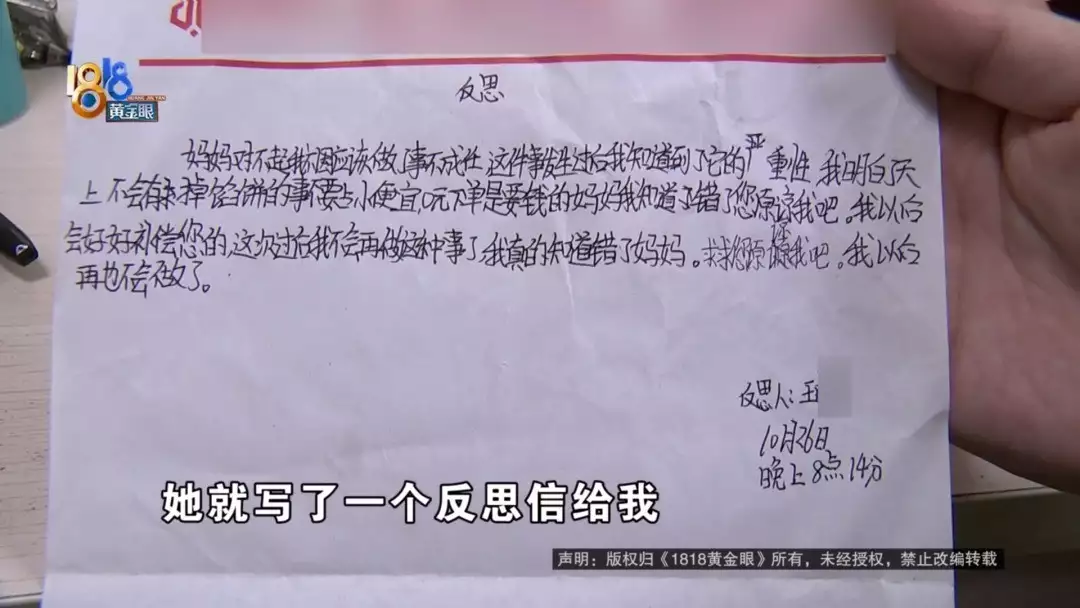 1818
黄金眼
反思
妈妈对不起我不因应该做事不成任这件事发生过后我知道到了它的严重性我明白了天
上不会有掉馅饼的事不要占小便宜,0元下单是要钱的妈妈我知道了错了您原谅我吧。我以后
会好好补偿您的,这次过后我不会再做这种事了,我真的知道错了妈妈。求求您原谅我吧。我以后
再也不会做了。
反思人:王
10月26日
晚上8点14分
她就写了一个反思信给我
声明:版权归《1818黄金眼》所有,未经授权,禁止改编转载